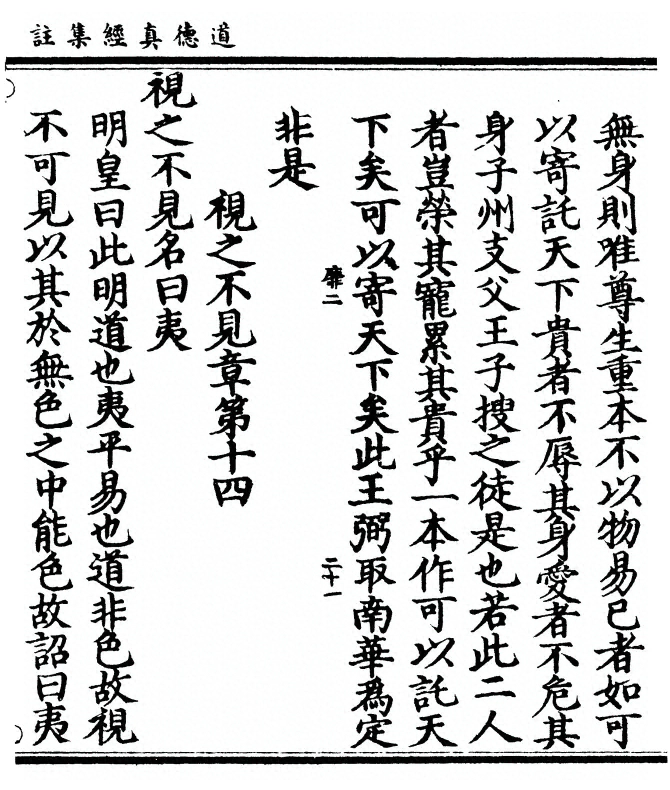 道德真經集註
無身則唯尊生重本不以物易己者如可
以寄託天下貴者不辱其身愛者不危其
身子州支父王子搜之徒是也若此二人
者豈榮其寵累其貴乎一本作可以託天
下矣可以寄天下矣此王弼取南華為定
靡二
二十一
非是
視之不見章第十四
視之不見名曰夷
明皇曰此明道也夷平易也道非色故視
不可見以其於無色之中能色故詔曰夷